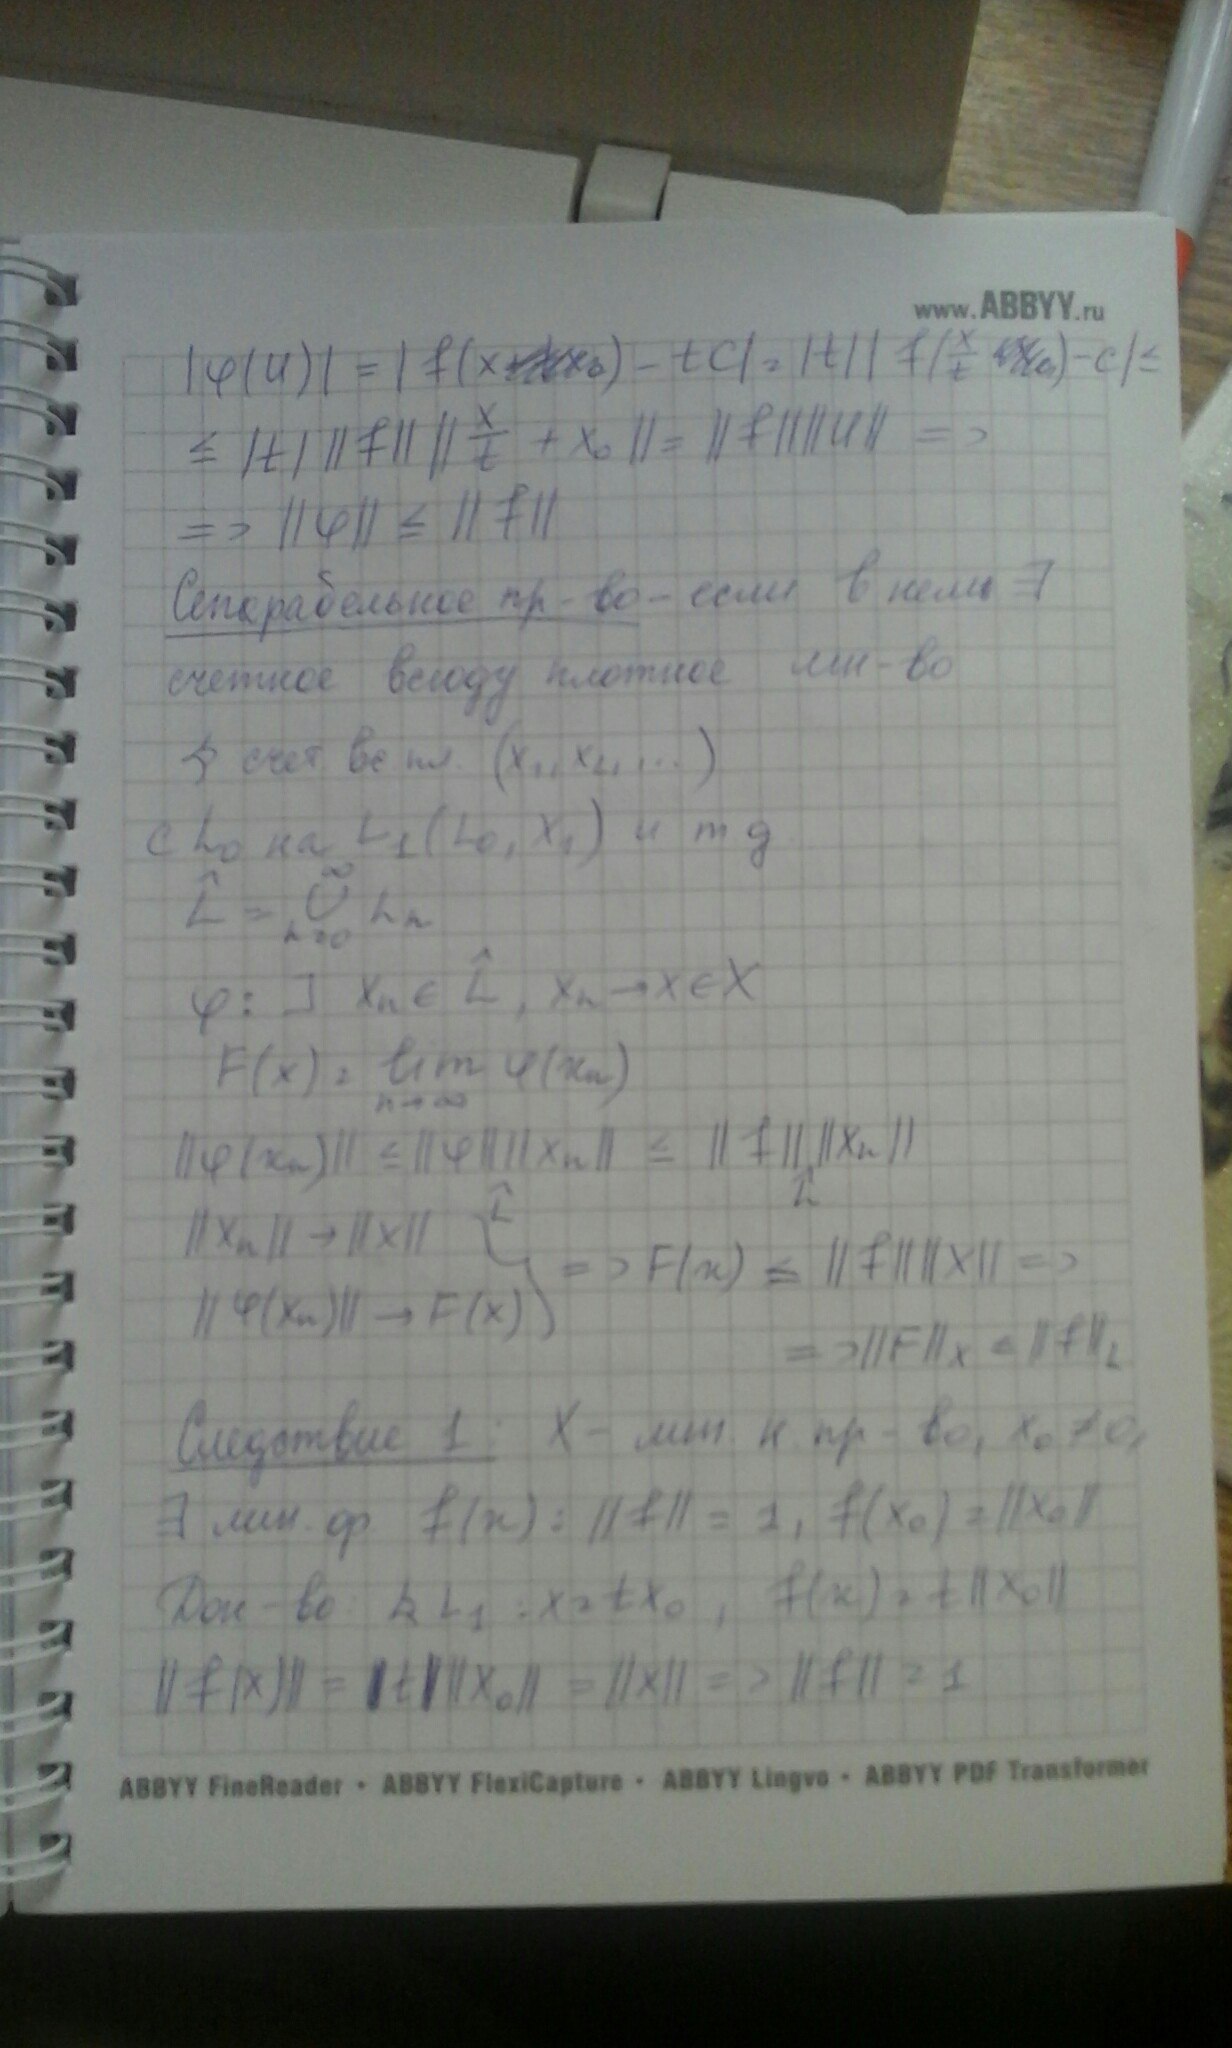 www.ABBYY.ru
|φ(U)| = |f(x) - tC| = |t| |f(x/t) - C| ≤
≤ |t| ||f|| ||x/t + x₀|| = ||f|| ||U|| =>
=> ||φ|| ≤ ||f||
Сепарабельное пр-во - если в нем ∃
счетное всюду плотное мн-во
счет вс пл. (x₁, x₂, ...)
с L₀ на L₁(L₀, x₁) и т д
L̂ = ∞∪n=0 Lₙ
φ: ∃ xₙ ∈ L̂, xₙ → x ∈ X
F(x) = lim n→∞ φ(xₙ)
||φ(xₙ)|| ≤ ||φ|| ||xₙ|| ≤ ||f|| ||xₙ||
L̂ L̂
||xₙ|| → ||x||
=> F(x) ≤ ||f|| ||x|| =>
||φ(xₙ)|| → F(x)
=> ||F||ₓ ≤ ||f||L
Следствие 1: X - лин. н пр-во, x₀ ≠ 0,
∃ лин. ф f(x): ||f|| = 1, f(x₀) = ||x₀||
Док-во: L₁: x = tx₀, f(x) = t||x₀||
||f(x)|| = |t| ||x₀|| = ||x|| => ||f|| = 1
ABBYY FineReader • ABBYY FlexiCapture • ABBYY Lingvo • ABBYY PDF Transformer